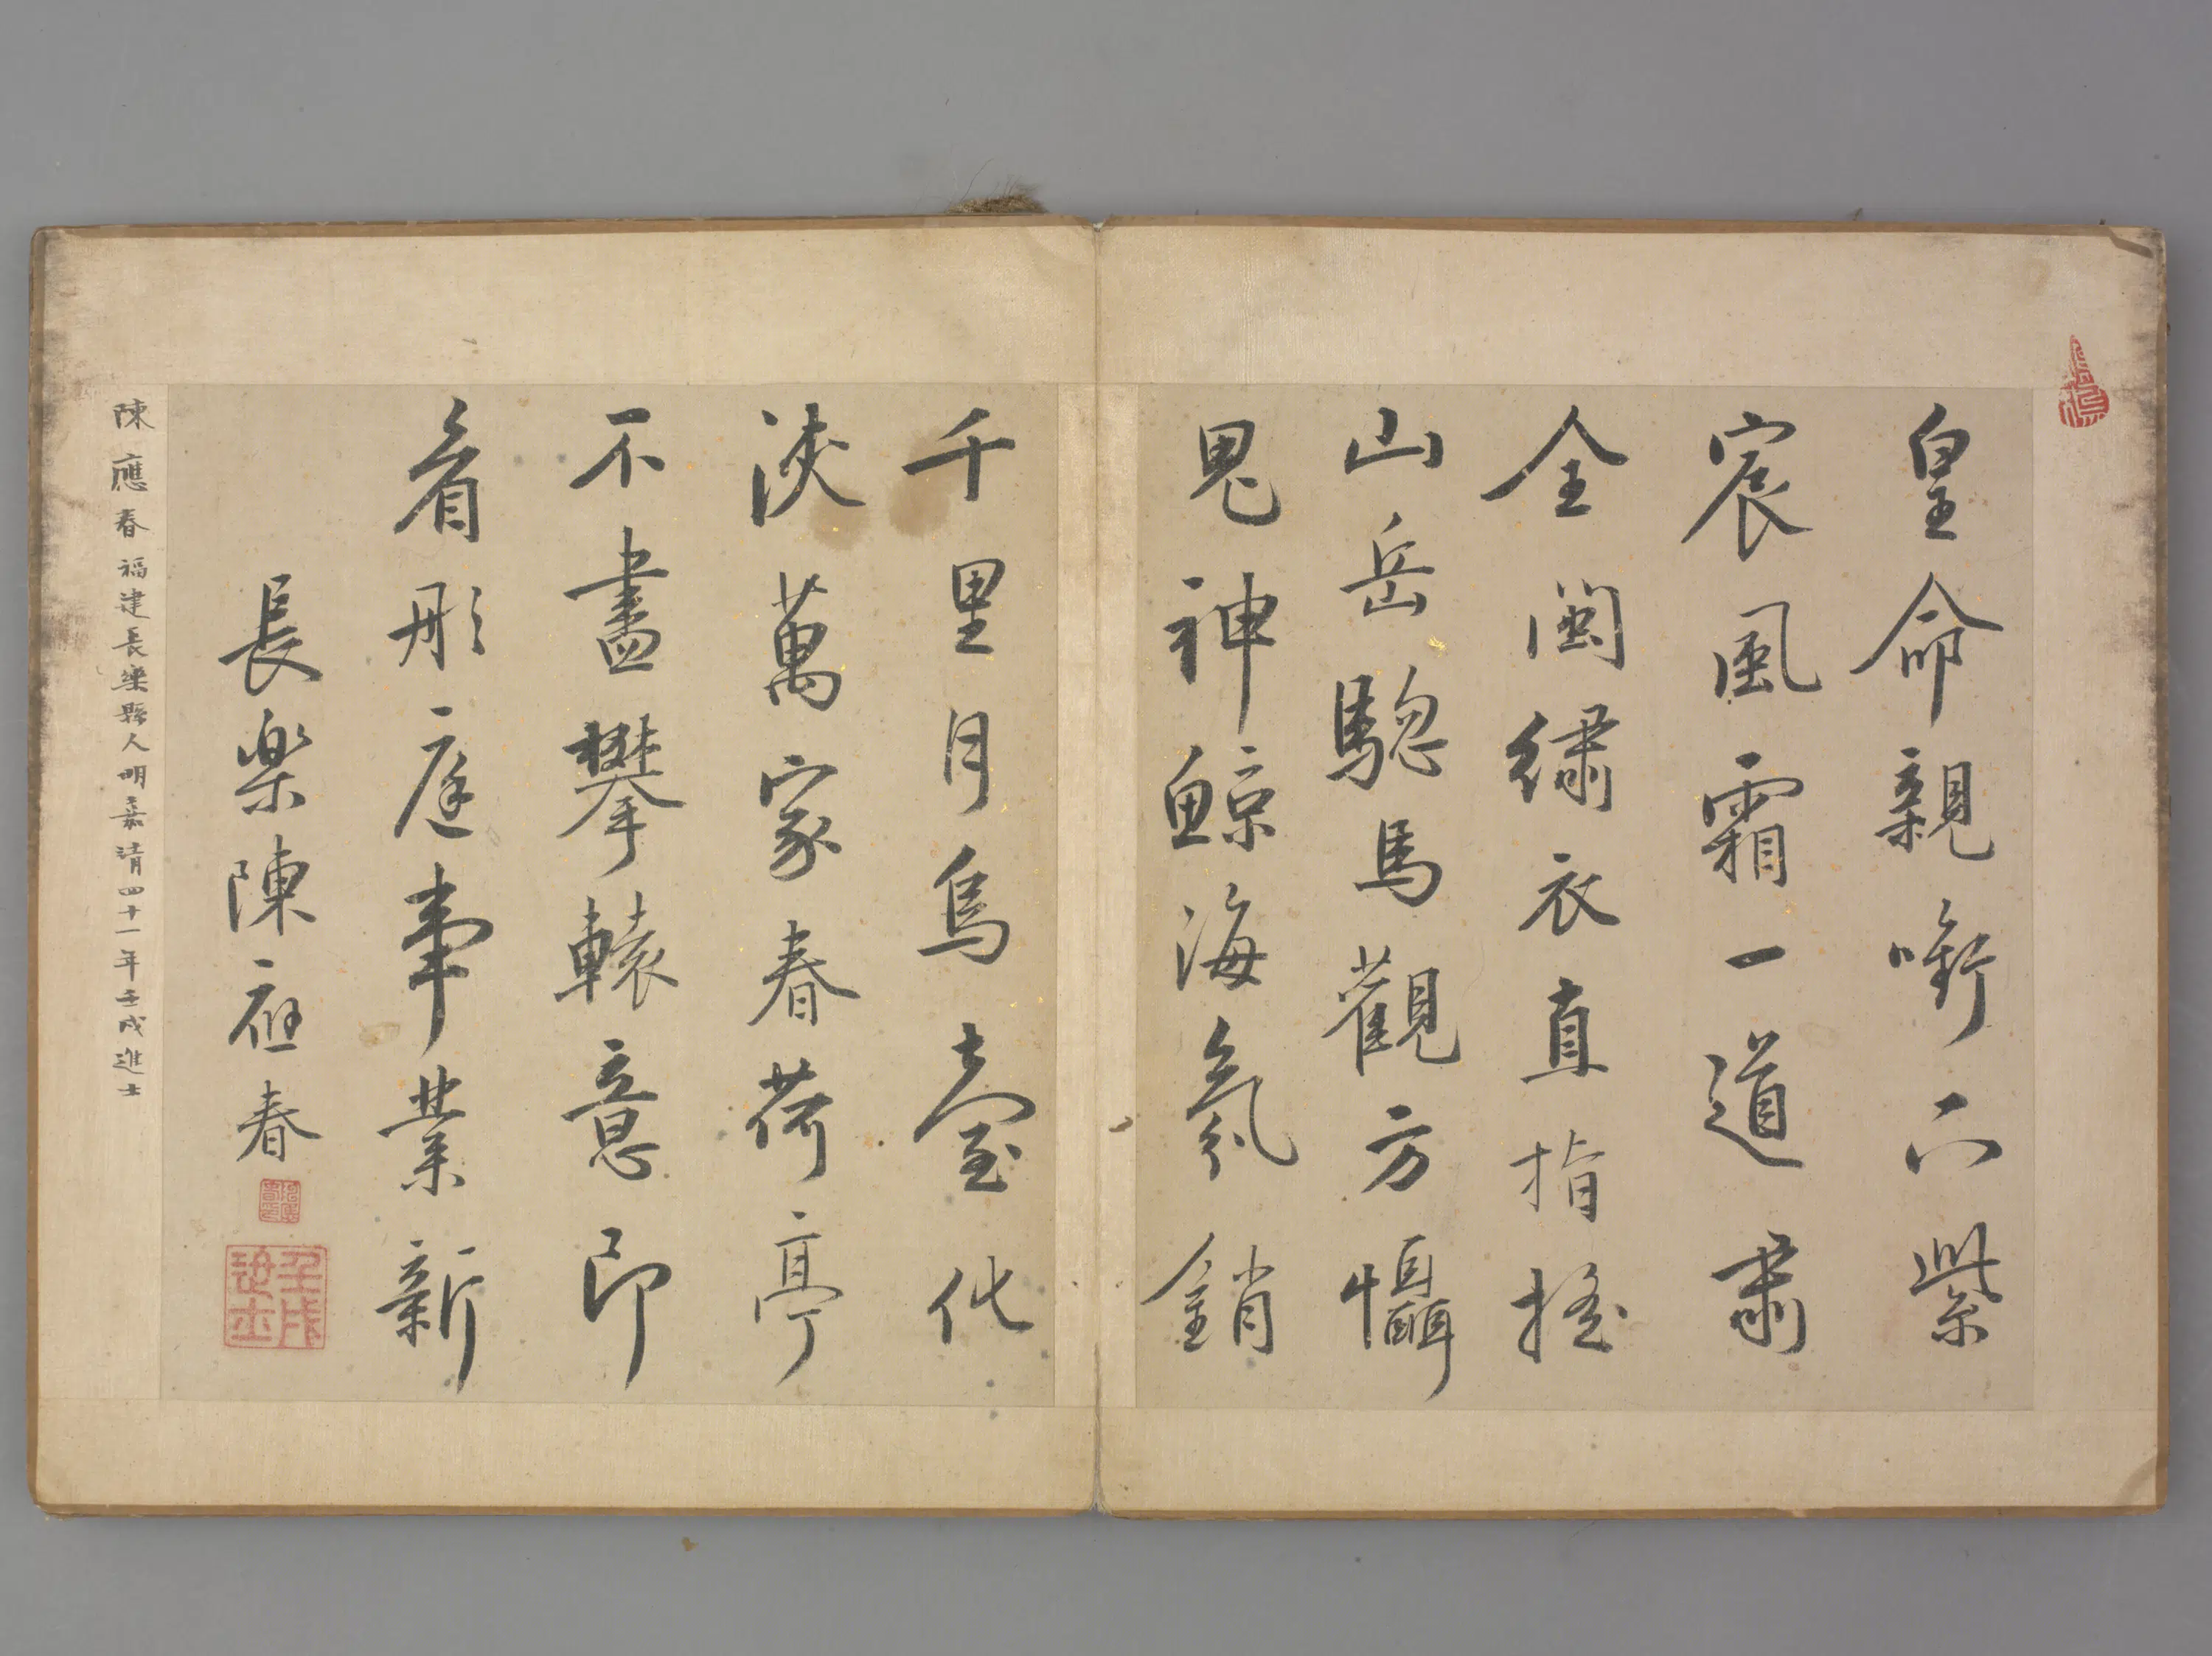 皇命親銜下紫
宸風霜一道肅
全閩繡衣直指搖
山岳驄馬觀方懾
鬼神鯨海氛銷
千里月烏臺化
浹萬家春荷亭
不盡攀轅意即
看彤庭事業新
長樂陳應春
陳應春福建長樂縣人明嘉清四十一年壬戌進士
壬戌進士